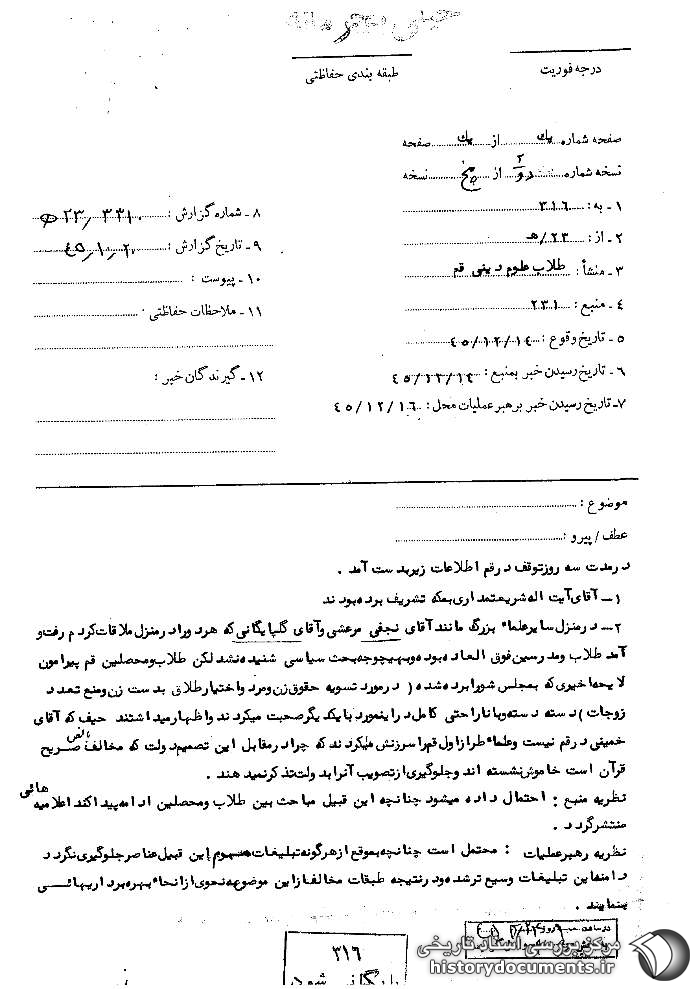 خیلی محرمانه
درجه فوریت
طبقه بندی حفاظتی
صفحه شماره یک از یک صفحه
نسخه شماره دو از پنج نسخه
۱ - به : ۳۱۶
۲ - از : ۲۳/هـ
۳ - منشأ : طلاب علوم دینی قم
۴ - منبع : ۲۳۱
۵ - تاریخ وقوع : ۴۵/۱۲/۱۴
۶ - تاریخ رسیدن خبر بمنبع : ۴۵/۱۲/۱۴
۷- تاریخ رسیدن خبر برهبر عملیات محل : ۴۵/۱۲/۱۶
۸ - شماره گزارش : ۲۳/۳۳۱۰
۹ - تاریخ گزارش :
۱۰ - پیوست :
۱۱ - ملاحظات حفاظتی :
۱۲ - گیرندگان خبر :
موضوع :
عطف / پیرو :
در مدت سه روز توقف در قم اطلاعات زیر بدست آمد .
۱ – آقای آیت اله شریعتمداری بمکه تشریف برده بودند
۲ – در منزل سایر علماء بزرگ مانند آقای نجفی مرعشی و آقای گلپایگانی که هر دو را در منزل ملاقات کردم رفت و
آمد طلاب و مدرسین فوق العاده بوده و بهیچوجه بحث سیاسی شنیده نشد لکن طلاب و محصلین قم پیرامون
لایحه اخیری که بمجلس شورا برده شده ( در مورد تسویه حقوق زن و مرد و اختیار طلاق بدست زن و منع تعدد
زوجات ) دسته دسته و با ناراحتی کامل در اینمورد با یکدیگر صحبت میکردند و اظهار میداشتند حیف که آقای
خمینی در قم نیست و علماء طراز اول قم را سرزنش میکردند که چرا در مقابل این تصمیم دولت که مخالف با نص صریح
قرآن است خاموش نشسته اند و جلوگیری از تصویب آنرا بدولت تذکر نمیدهند .
نظریه منبع : احتمال داده میشود چنانچه این قبیل مباحث بین طلاب و محصلین ادامه پیدا کند اعلامیه هائی
منتشر گردد .
نظریه رهبر عملیات : محتمل است چنانچه بموقع از هرگونه تبلیغات مسموم این قبیل عناصر جلوگیری نگردد
دامنه این تبلیغات وسیع تر شده و در نتیجه طبقات مخالف از این موضوع به نحوی از انحاء بهره برداریهائی
بنمایند .
۳۱۶
بایگانی شود
مرکز بررسی اسناد تاریخی
historydocuments.ir